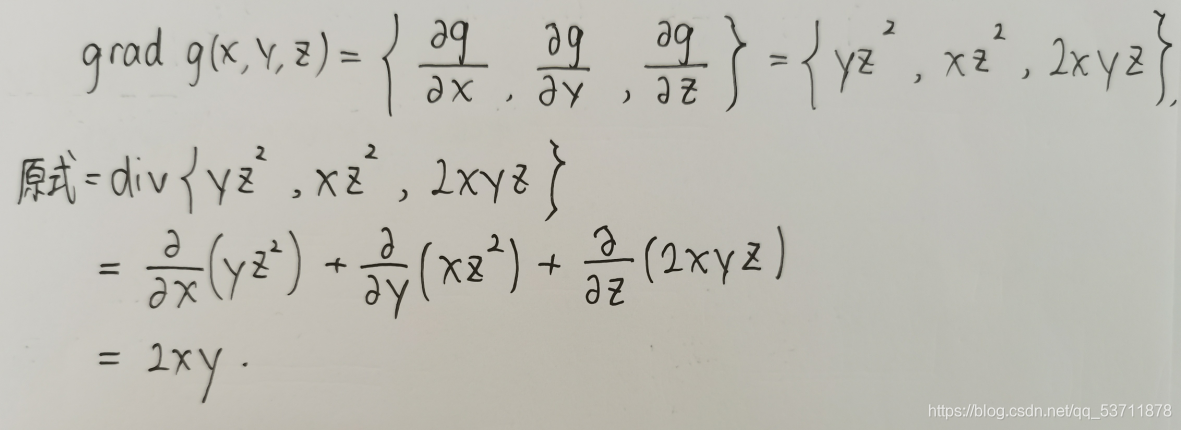 grad g(x,y,z) = { ∂g/∂x , ∂g/∂y , ∂g/∂z } = { yz² , xz² , 2xyz },
原式 = div { yz² , xz² , 2xyz }
= ∂/∂x (yz²) + ∂/∂y (xz²) + ∂/∂z (2xyz)
= 2xy .
https://blog.csdn.net/qq_53711878